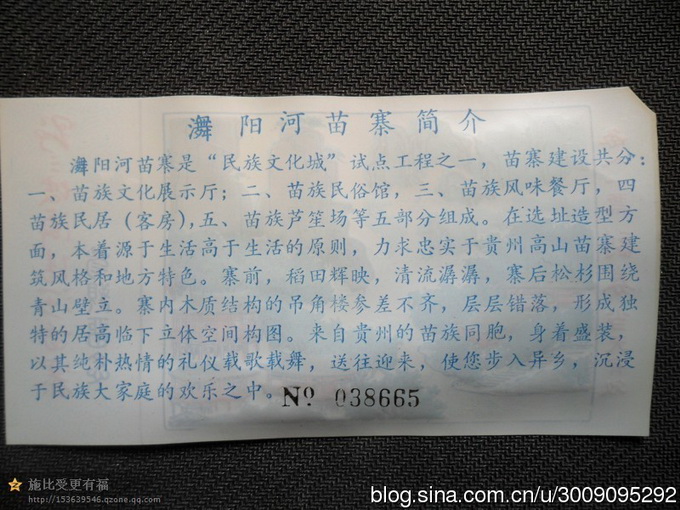 㵲阳河苗寨简介
㵲阳河苗寨是“民族文化城”试点工程之一，苗寨建设共分：
一、苗族文化展示厅；二、苗族民俗馆，三、苗族风味餐厅，四
苗族民居（客房），五、苗族芦笙场等五部分组成。在选址造型方
面，本着源于生活高于生活的原则，力求忠实于贵州高山苗寨建
筑风格和地方特色。寨前，稻田辉映，清流潺潺，寨后松杉围绕
青山壁立。寨内木质结构的吊角楼参差不齐，层层错落，形成独
特的居高临下立体空间构图。来自贵州的苗族同胞，身着盛装，
以其纯朴热情的礼仪载歌载舞，送往迎来，使您步入异乡，沉浸
于民族大家庭的欢乐之中。
№ 038665
施比受更有福
http://153639546.qzone.qq.com
blog.sina.com.cn/u/3009095292